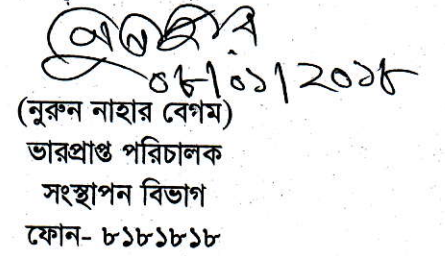 ০৪/০১/২০১৮
(নুরুন নাহার বেগম)
ভারপ্রাপ্ত পরিচালক
সংস্থাপন বিভাগ
ফোন- ৮১৮১৮১৮